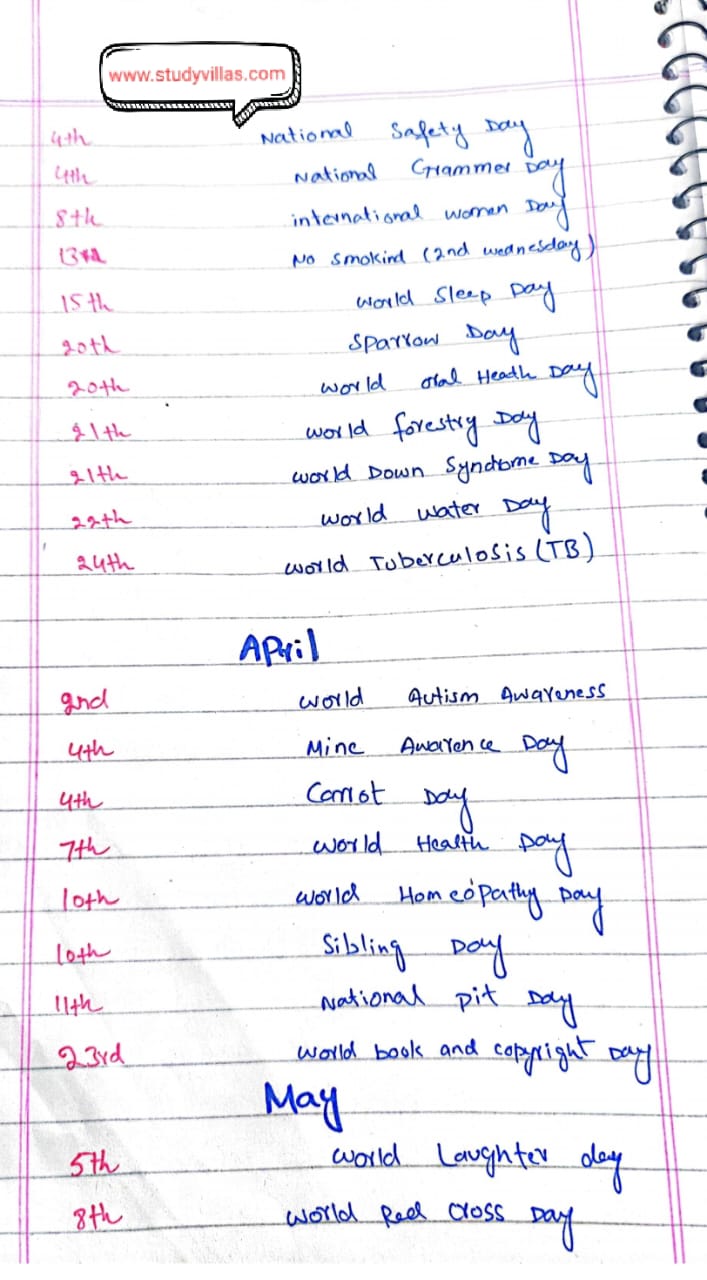 www.studyvillas.com
4th National Safety Day
4th National Grammer Day
8th international women Day
13th No smokind (2nd wednesday)
15th world Sleep Day
20th Sparrow Day
20th world oral Heath Day
21th world forestry Day
21th world Down Syndrome Day
22th world water Day
24th world Tuberculosis (TB)
April
2nd world Autism Awareness
4th Mine Awarence Day
4th Carrot Day
7th world Health Day
10th world Homeopathy Day
10th Sibling Day
11th National pit Day
23rd world book and copyright Day
May
5th world Laughter day
8th world Red Cross Day